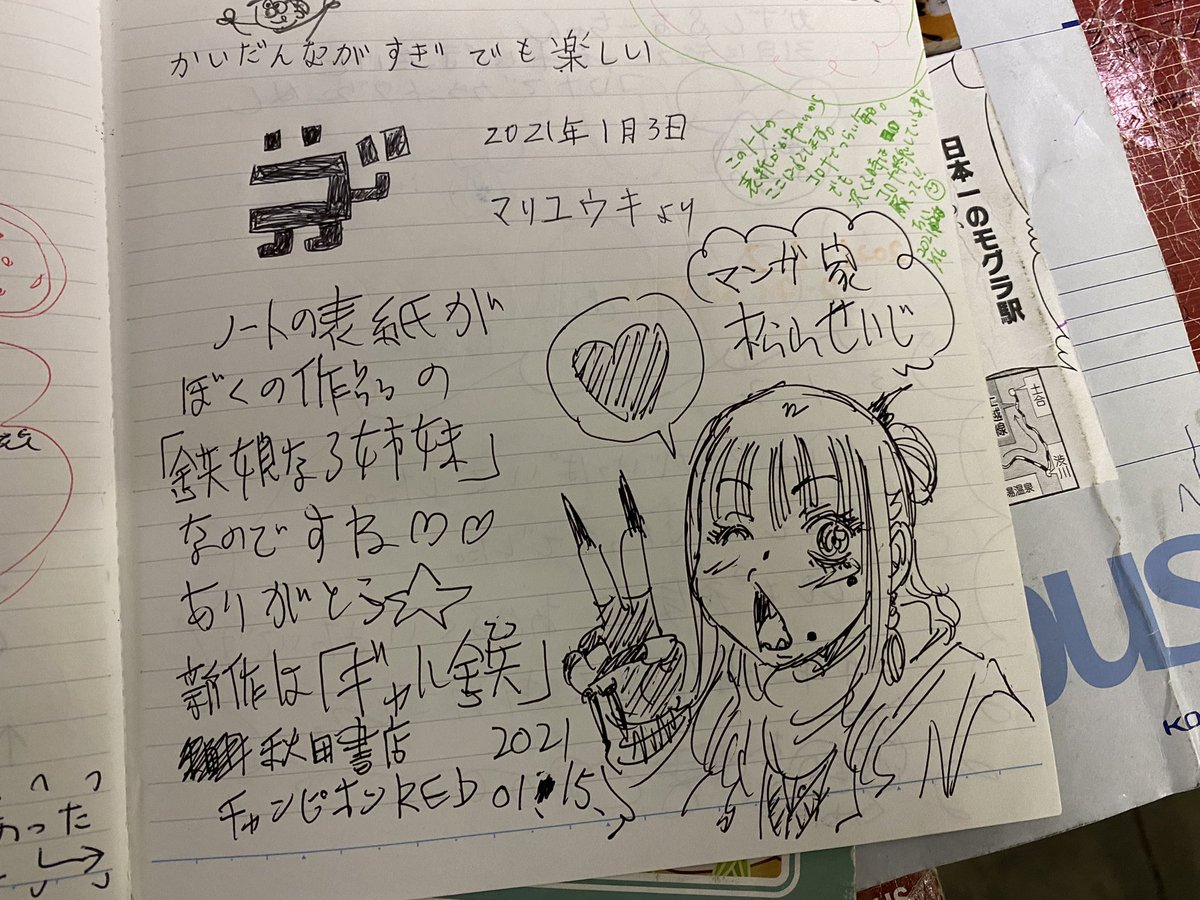 かいだんながすぎでも楽しい
2021年1月3日
マリユウキより
このノートの
表紙がかわいいから
マンガ家
松山せいじ
ノートの表紙が
ぼくの作品の
「鉄娘な3姉妹」
なのですね♡♡
ありがとう☆
新作は「ギャル鉄」
秋田書店
2021
チャンピオンRED 01.15
日本一のモグラ駅
土合
渋川
湯温泉
あった